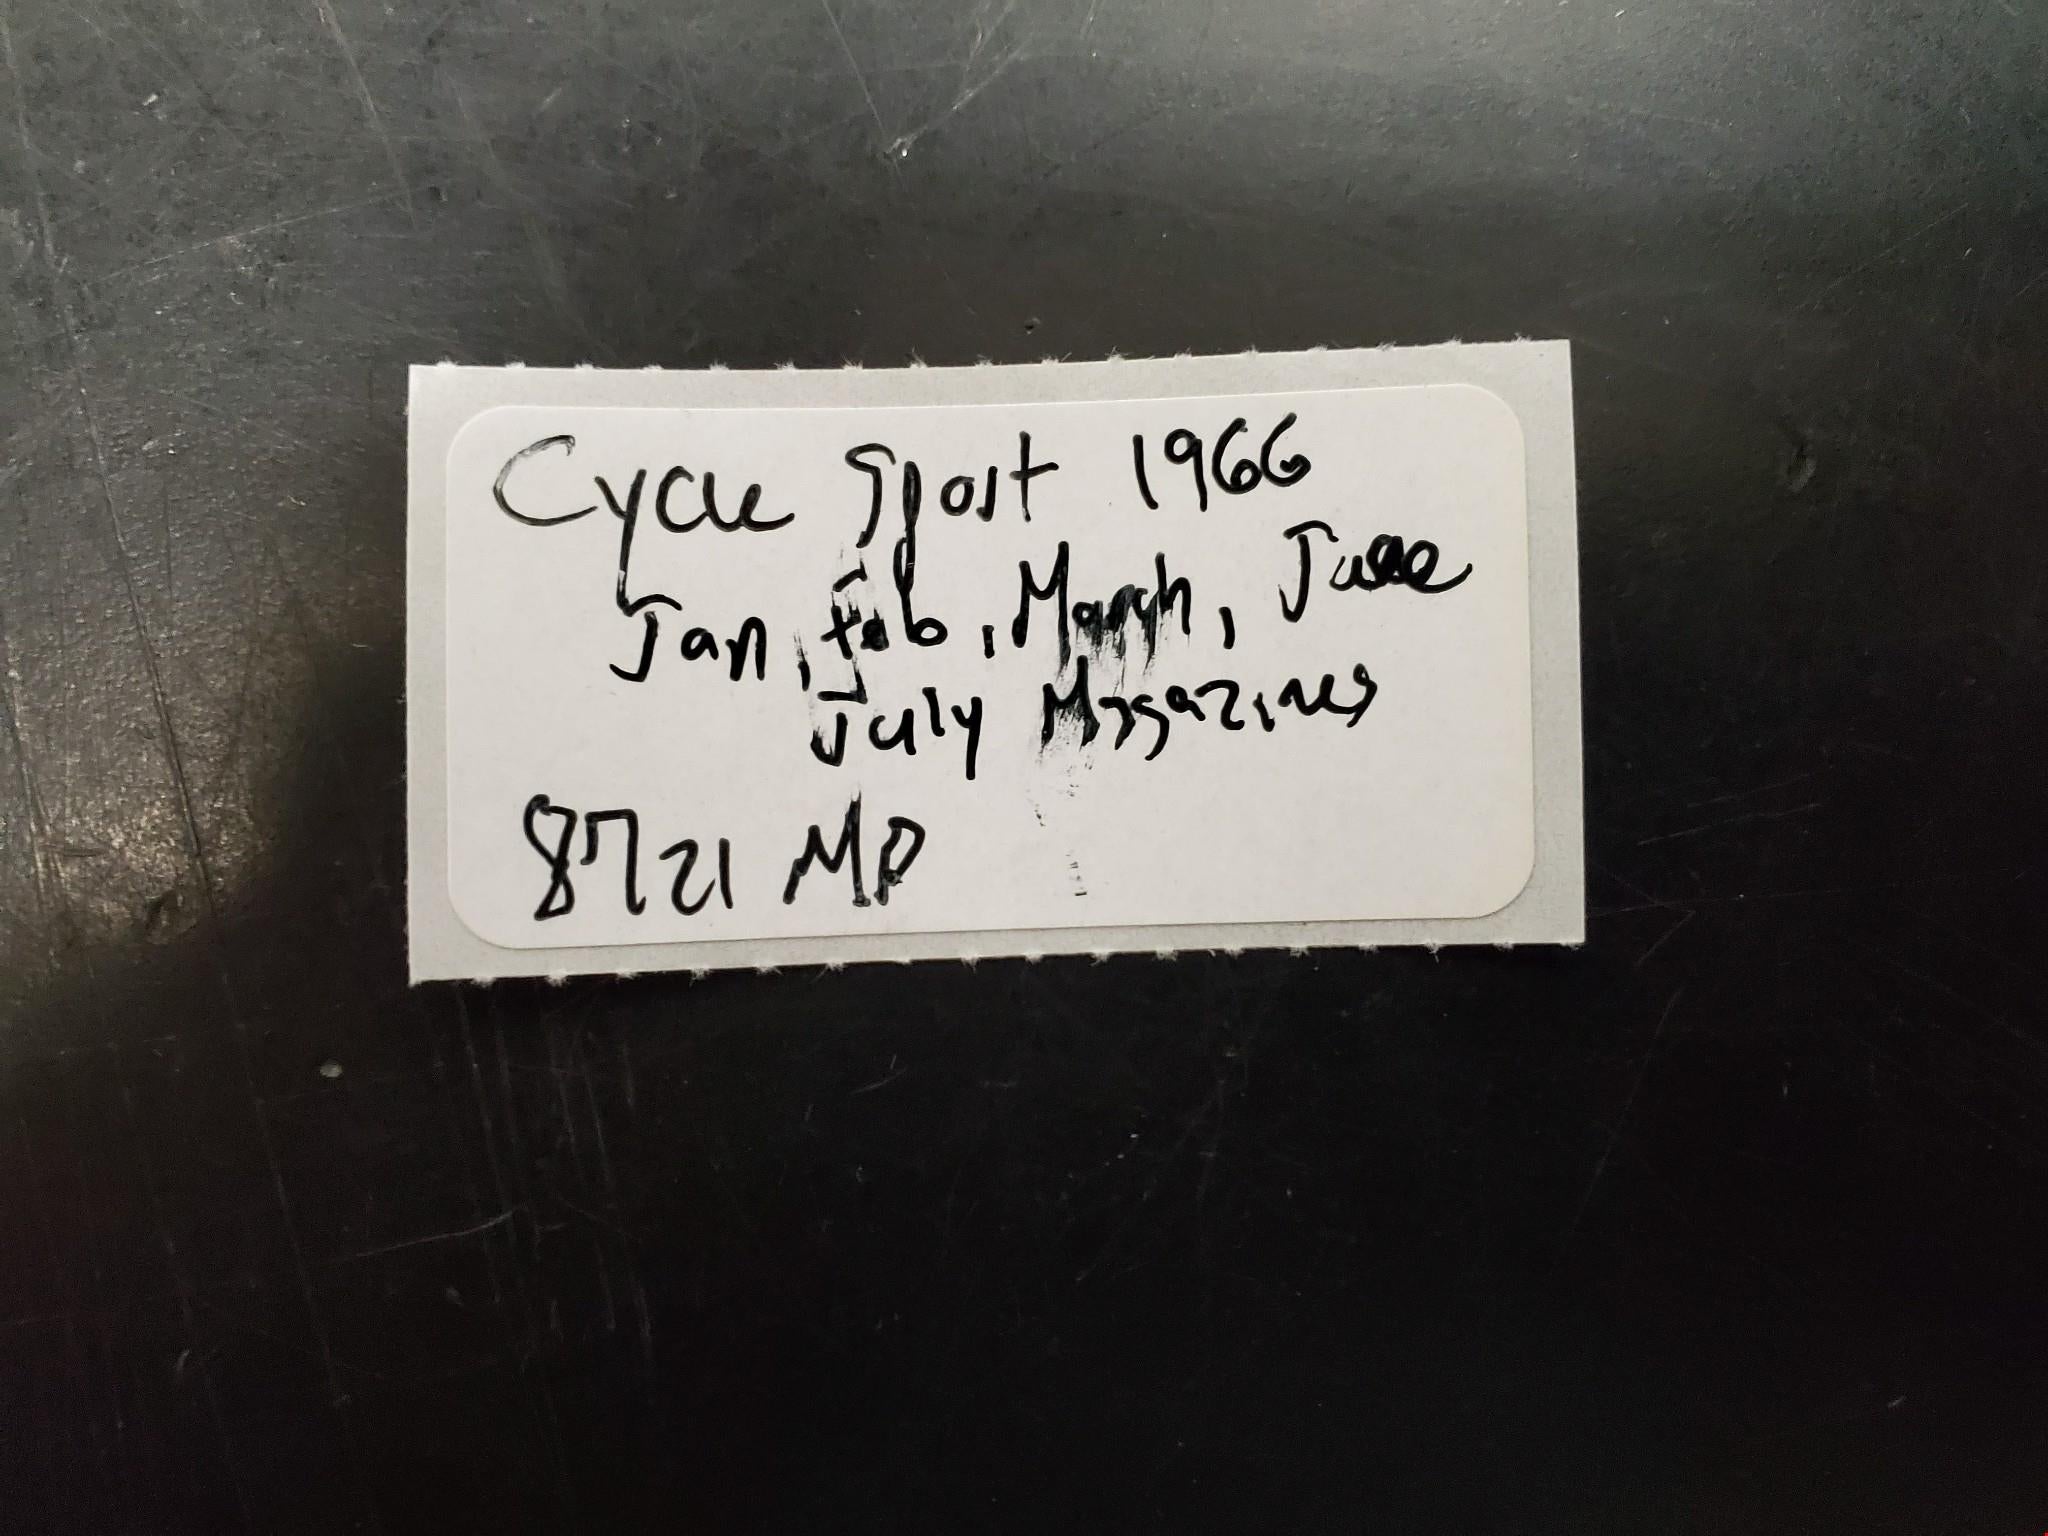 Cycle Sport 1966
Jan, Feb, March, June
July Magazines
8721 MP